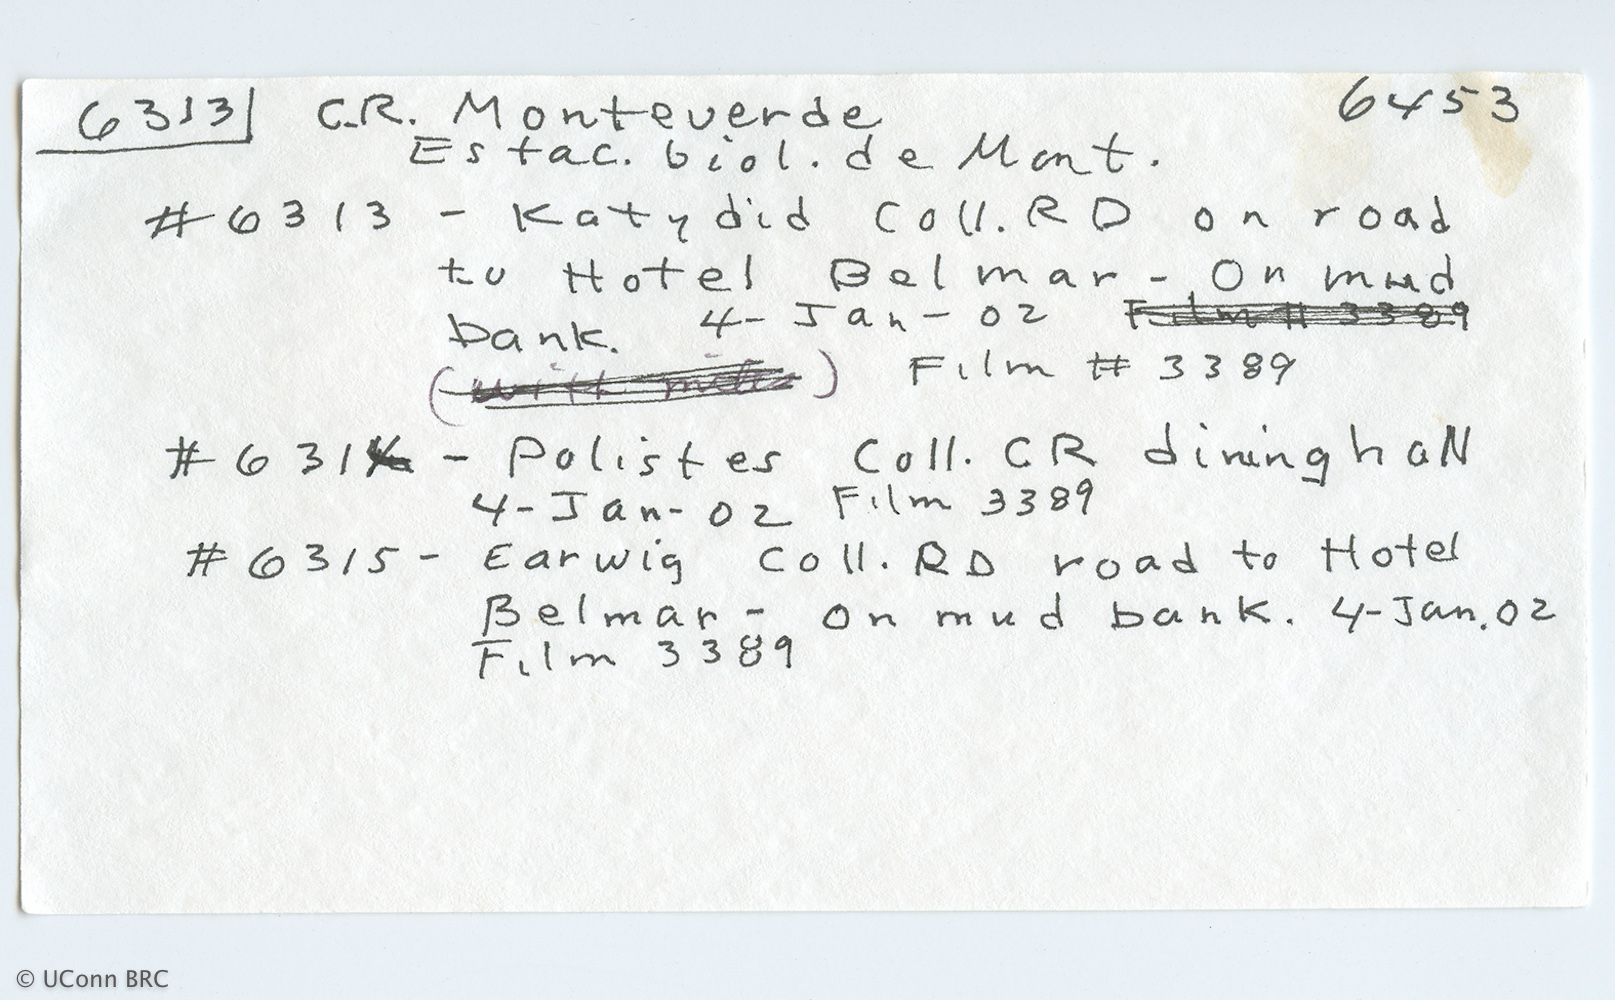 6313 C.R. Monteverde 6453
Estac. biol. de Mont.
#6313 - Katydid Coll. RD on road
to Hotel Belmar - On mud
bank. 4-Jan-02 Film # 3389
( ) Film # 3389
#6314 - Polistes Coll. CR dining hall
4-Jan-02 Film 3389
#6315 - Earwig Coll. RD road to Hotel
Belmar - on mud bank. 4-Jan.02
Film 3389
© UConn BRC